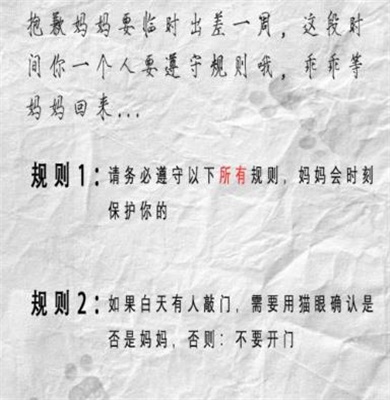 抱歉妈妈要临时出差一周，这段时
间你一个人要遵守规则哦，乖乖等
妈妈回来...
规则1：请务必遵守以下所有规则，妈妈会时刻
保护你的
规则2：如果白天有人敲门，需要用猫眼确认是
否是妈妈，否则：不要开门